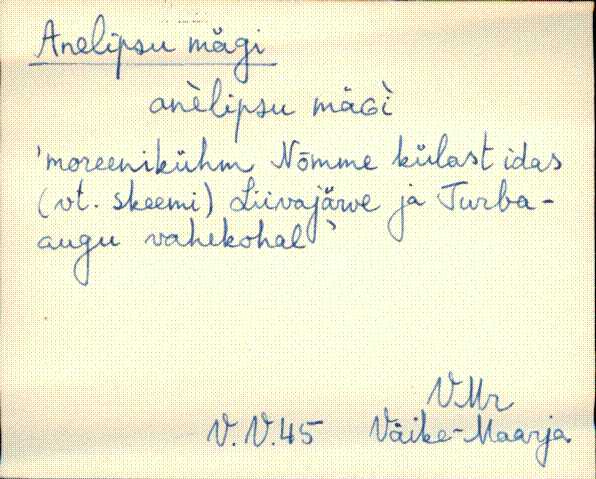 Anelipsu mägi
anèlipsu mäGì
'moreenikühm Nõmme külast idas
(vt. skeemi) Liivajärve ja Turba-
augu vahekohal'
V.Mr
V.V.45 Väike-Maarja